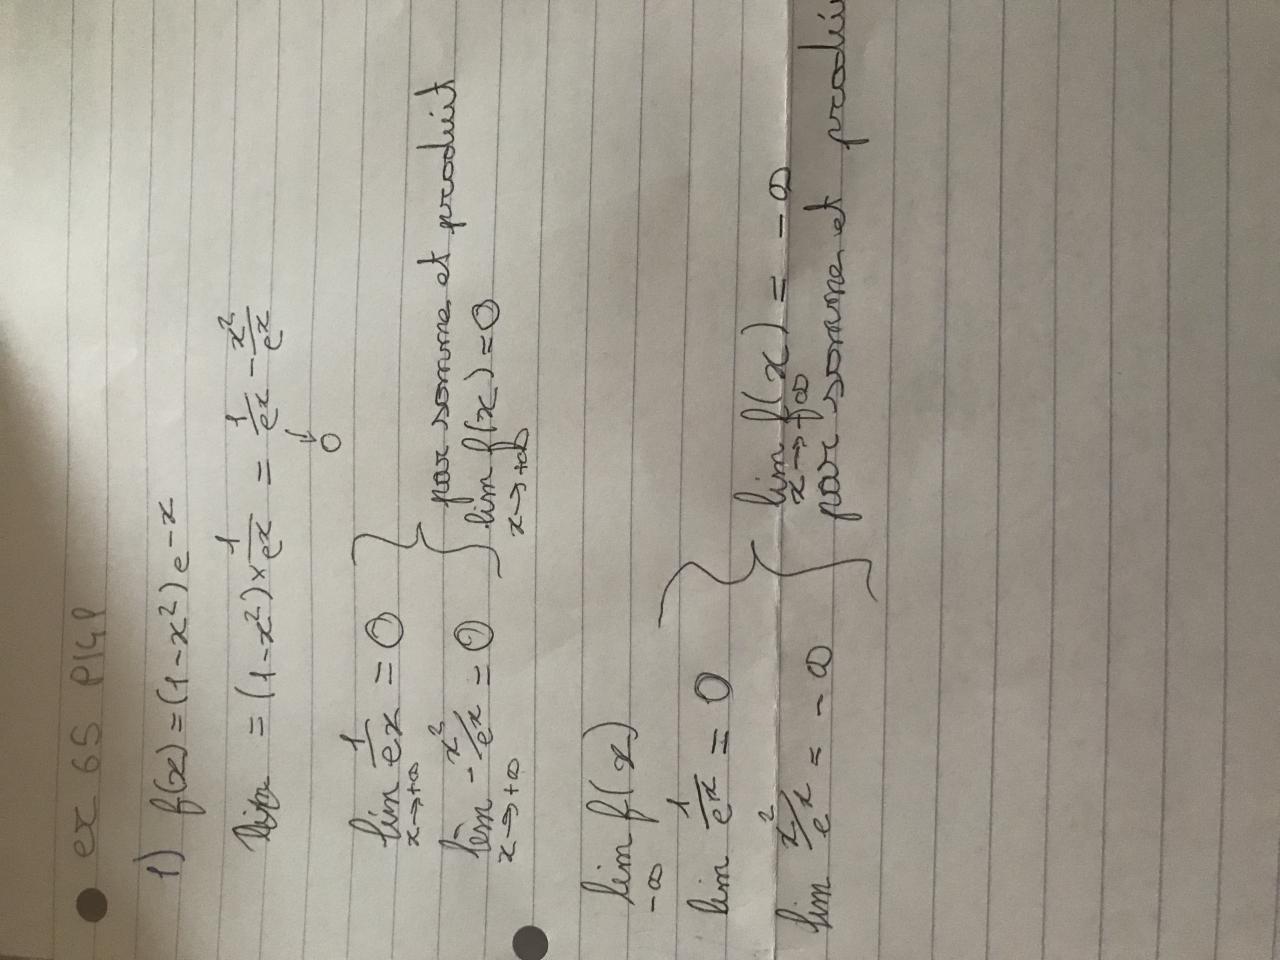 ex 65 P149
1) f(x) = (1-x²)e^-x
= (1-x²) × 1/e^x = 1/e^x - x²/e^x
↓
0
lim 1/e^x = 0
x→+∞
lim - x²/e^x = 0
x→+∞
par somme et produit
lim f(x) = 0
x→+∞
lim f(x)
-∞
lim 1/e^x = 0
lim x²/e^x = -∞
lim f(x) = -∞
x→+∞
par somme et produi